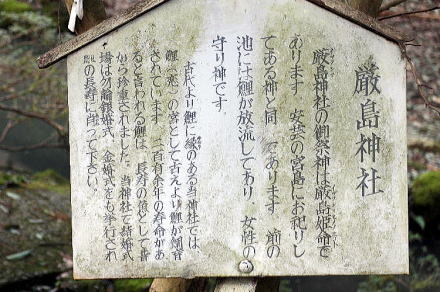 厳島神社
厳島神社の御祭神は厳島姫命で
あります 安芸の宮島にお祀りし
てある神と同一であります 前の
池には鯉が放流してあり、女性の
守り神です。
古代より鯉に縁のある当神社では、
鯉(恋)の宮として古えより鯉が飼育
されています 二百有余年の寿命があ
ると言われる鯉は、長寿の魚として昔
から珍重されました。当神社で結婚式
場は勿論銀婚式、金婚式をも挙行され
の長寿に肖って下さい。